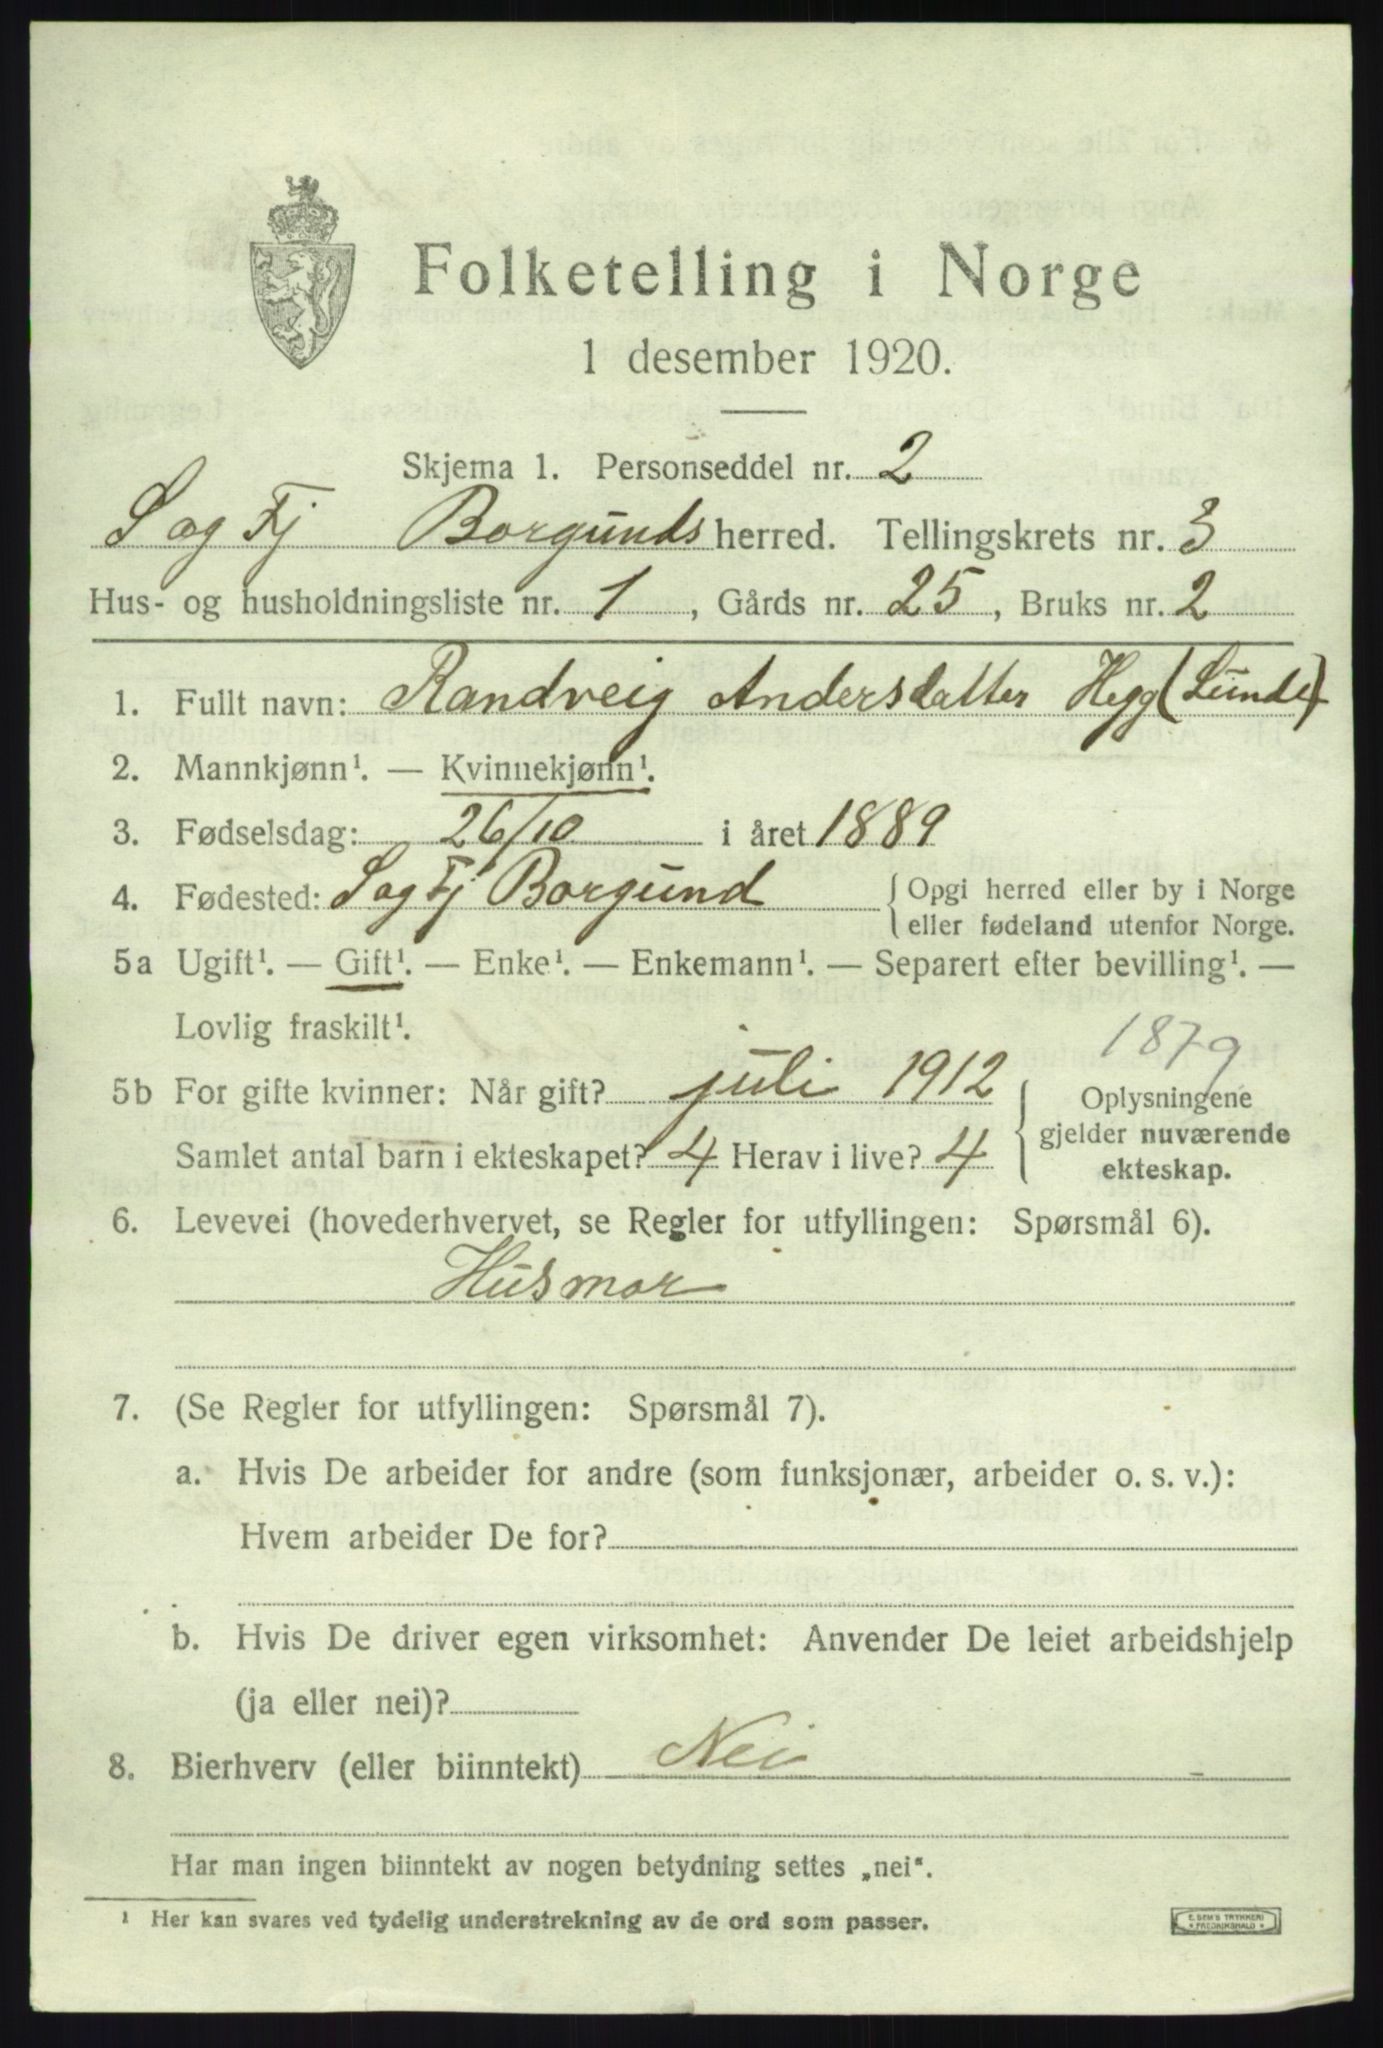 Folketelling i Norge
1 desember 1920.
Skjema 1. Personseddel nr. 2
S og Fj Borgunds herred. Tellingskrets nr. 3
Hus- og husholdningsliste nr. 1, Gårds nr. 25, Bruks nr. 2
1. Fullt navn: Randveig Andersdatter Hegg (Lunde)
2. Mannkjønn¹. — Kvinnekjønn¹.
3. Fødselsdag: 26/10 i året 1889
4. Fødested: S og Fj Borgund {Opgi herred eller by i Norge
eller fødeland utenfor Norge.
5a Ugift¹. — Gift¹. — Enke¹. — Enkemann¹. — Separert efter bevilling¹. —
Lovlig fraskilt¹.
1879
5b For gifte kvinner: Når gift? juli 1912 { Oplysningene
gjelder nuværende
Samlet antal barn i ekteskapet? 4 Herav i live? 4
ekteskap.
6. Levevei (hovederhvervet, se Regler for utfyllingen: Spørsmål 6).
Husmor
7. (Se Regler for utfyllingen: Spørsmål 7).
a. Hvis De arbeider for andre (som funksjonær, arbeider o. s. v.):
Hvem arbeider De for?
b. Hvis De driver egen virksomhet: Anvender De leiet arbeidshjelp
(ja eller nei)?
8. Bierhverv (eller biinntekt) Nei
Har man ingen biinntekt av nogen betydning settes „nei“.
¹ Her kan svares ved tydelig understrekning av de ord som passer.
E. SEM'S TRYKKERI
* FREDRIKSHALD *